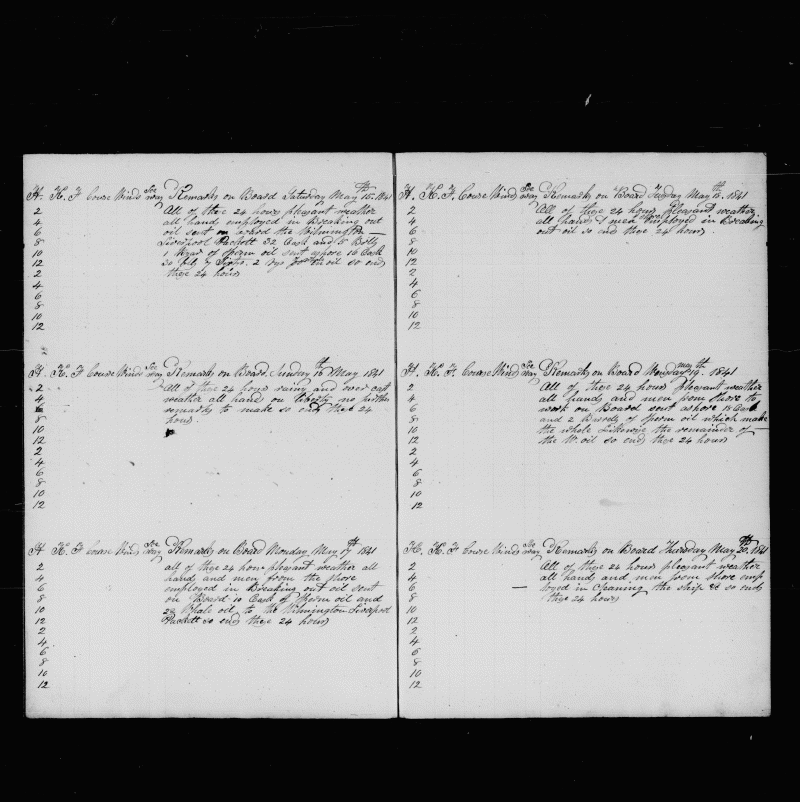 H. Ks. F Course Winds See way Remarks on Board Saturday May 15th 1841
2 All of these 24 hours pleasant weather
4 all hands employed in Breaking out
6 oil sent on board the Wilmington —
8 Liverpool Packett 32 Cask and 5 Bolls
10 1 of Sperm oil sent ashore 18 Cask
12 2 oil so end
2 these 24 hours
4
6
8
10
12
H. Ks. F. Course Winds See way Remarks on Board Sunday 16th May 1841
2 All of these 24 hours rainy and over cast
4 weather all hands on liberty no further
6 remarks to make so ends these 24
8 hours.
10
12
2
4
6
8
10
12
H Ks. F Course Winds See way Remarks on Board Monday May 17th 1841
2 all of these 24 hours pleasant weather all
4 hands and men from the shore
6 employed in Breaking out oil sent
8 on Board 10 Cask of Sperm oil and
10 28 Whale oil to the Wilmington Liverpool
12 Packett so ends these 24 hours
2
4
6
8
10
12
H. Ks. F. Course Winds See way Remarks on Board Tusday May th 1841
2 All of these 24 hours pleasant weather
4 all hands & men employed in Breaking
6 out oil so end these 24 hours
8
10
12
2
4
6
8
10
12
H. Ks. F. Course Winds See way Remarks on Board may 19th 1841
2 All of these 24 hours pleasant weather
4 all hands and men from shore to
6 work on Board sent ashore 18 Cask
8 and 2 Barrels of Sperm oil which make
10 the whole Likewise the remainder of —
12 the W. oil so ends these 24 hours
2
4
6
8
10
12
H. Ks. F Course Winds See way Remarks on Board Thursday May 20th 1841
2 All of these 24 hours pleasant weather
4 all hands and men from shore emp
6 — loyed in Cleaning the ship &c so ends
8 these 24 hours
10
12
2
4
6
8
10
12